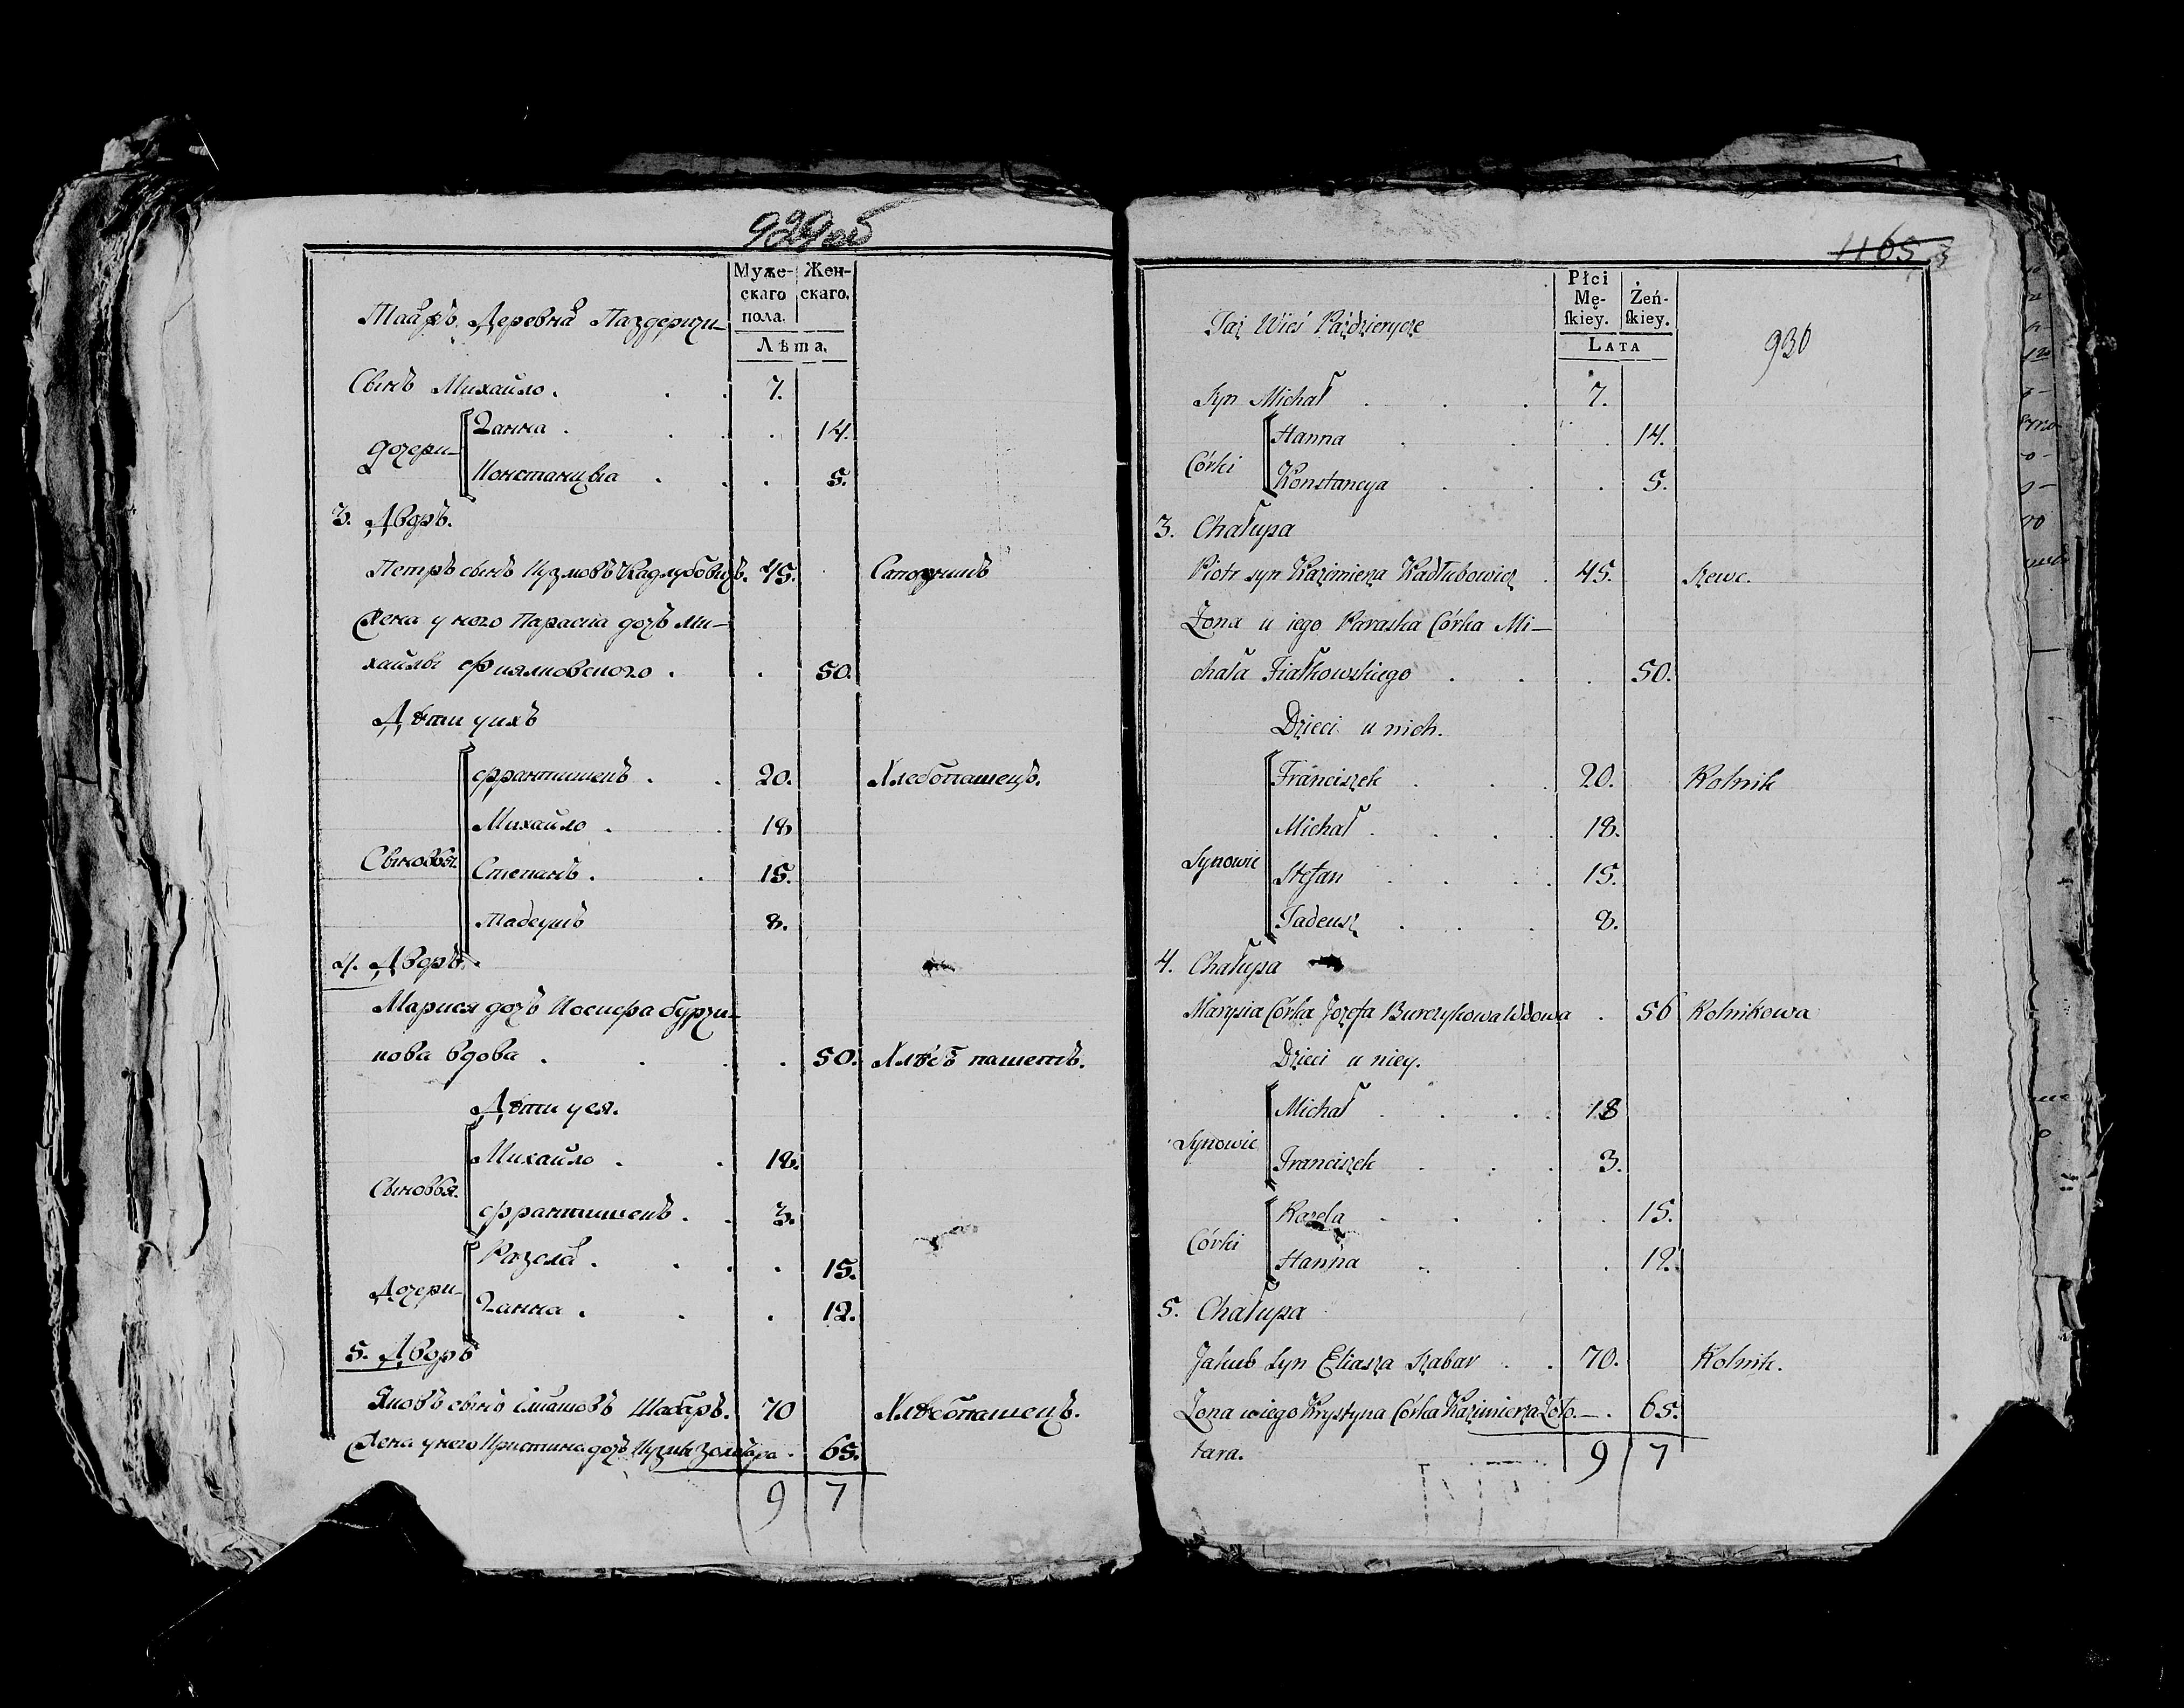 929 об
Муже- Жен-
скаго скаго.
пола.
Лѣта.
Таяжъ Деревня Паздеричи
Сынъ Михайло . 7.
Дочери
Ганна . 14.
Констанцыа . 5.
3. Дворъ.
Петръ сынъ Кузмовъ Кадлубовичъ. 45. Сапожникъ
Жена у него Параска дочъ Ми-
хайлы Фиялковского . 50.
Дѣти у ихъ
Францишекъ . 20. Хлебопашецъ.
Михайло . 18
Сыновья
Степанъ . 15.
Тадеушъ 8.
4. Дворъ.
Марися дочъ Иосифа Бурчи-
кова вдова . 50. Хлѣбопашецъ.
Дѣти у ея.
Михайло . 18.
Сыновья.
Францишекъ . 3.
Розеля . 15.
Дочери
Ганна . 12.
5. Дворъ
Яковъ сынъ Елиашовъ Шабаръ. 70 Хлѣбопашецъ.
Жена у него Кристина дочъ Кузмы Золотара . 65.
9 7
1165
930
Płci
Mę- Żeń-
ſkiey. ſkiey.
LATA
Taż Wieś Paździerycze
Syn Michał . 7.
Hanna 14.
Córki
Konstancya 5.
3. Chałupa
Piotr syn Kazimierza Kadłubowicz . 45. Szewc.
Żona u iego Paraska Córka Mi—
chała Fiałkowskiego . 50.
Dzieci u nich.
Franciszek 20. Rolnik
Michał . 18.
Synowie
Stefan 15.
Tadeusz 8.
4. Chałupa
Marysia Córka Jozefa Burczykowa Wdowa . 56 Rolnikowa
Dzieci u niey.
Michał 18
Synowie
Franciszek 3.
Rozela 15.
Córki
Hanna 12.
5. Chałupa
Jakub syn Eliasza Szabar . 70. Rolnik.
Żona u iego Krystyna Córka Kazimierza Zoło. — . 65.
tara. 9 7